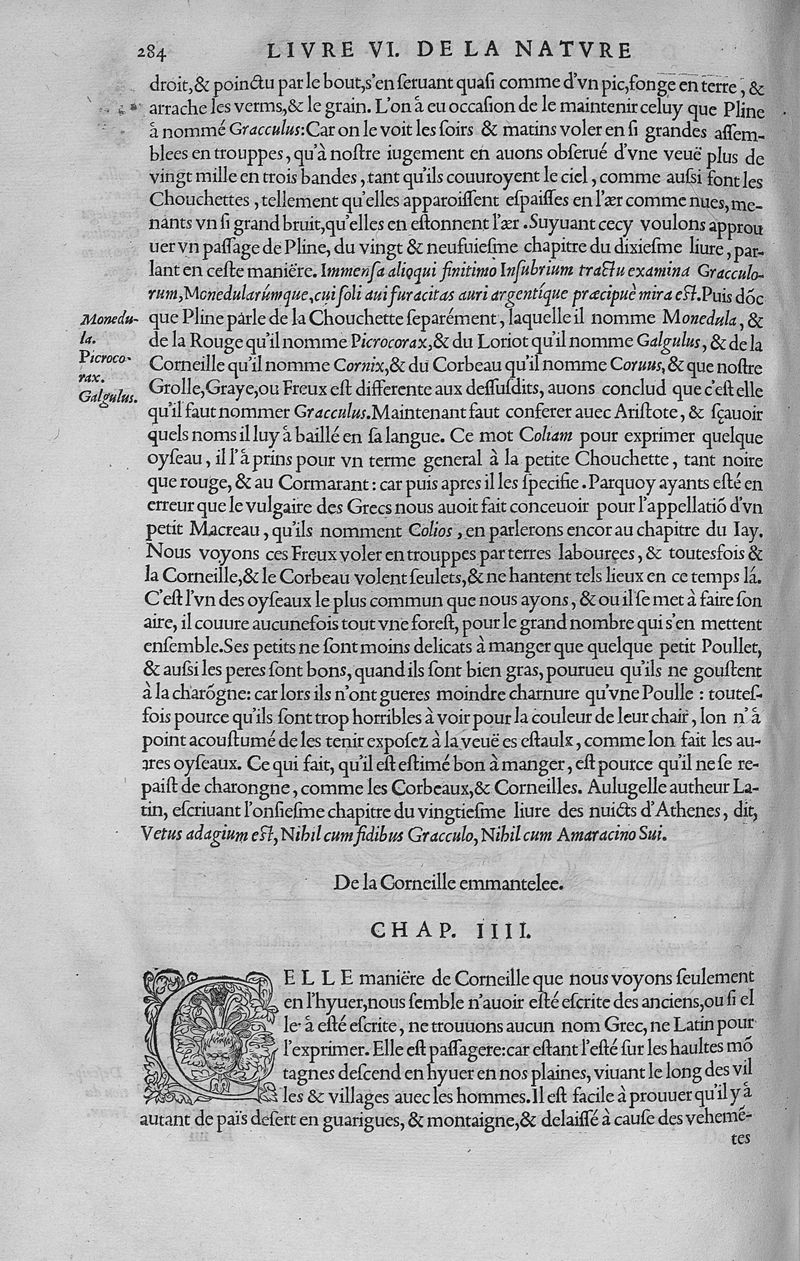 284 LIVRE VI. DE LA NATVRE
droit, & poinctu par le bout, s'en ſeruant quaſi comme d'vn pic, fonge en terre, &
arrache les verms, & le grain. L'on å eu occaſion de le maintenir celuy que Pline
å nommé Gracculus: Car on le voit les ſoirs & matins voler en ſi grandes aſſem-
blees en trouppes, qu'à noſtre iugement en auons obſerué d'vne veuë plus de
vingt mille en trois bandes, tant qu'ils couuroyent le ciel, comme auſsi font les
Chouchettes, tellement qu'elles apparoiſſent eſpaiſſes en l'ær comme nues, me-
nants vn ſi grand bruit, qu'elles en eſtonnent l'ær. Suyuant cecy voulons approu
uer vn paſſage de Pline, du vingt & neufuieſme chapitre du dixieſme liure, par-
lant en ceſte maniëre. Immenſa alioqui finitimo Inſubrium tractu examina Gracculo-
rum, Monedularúmque, cui ſoli aui furacitas auri argentíque præcipuè mira eſt. Puis dõc
Monedu-
la.
Picroco-
rax.
Galgulus.
que Pline parle de la Chouchette ſeparément, laquelle il nomme Monedula, &
de la Rouge qu'il nomme Picrocorax, & du Loriot qu'il nomme Galgulus, & de la
Corneille qu'il nomme Cornix, & du Corbeau qu'il nomme Coruus, & que noſtre
Grolle, Graye, ou Freux eſt differente aux deſſuſdits, auons conclud que c'eſt elle
qu'il faut nommer Gracculus. Maintenant faut conferer auec Ariſtote, & ſçauoir
quels noms il luy å baillé en ſa langue. Ce mot Coliam pour exprimer quelque
oyſeau, il l'å prins pour vn terme general à la petite Chouchette, tant noire
que rouge, & au Cormarant: car puis apres il les ſpecifie. Parquoy ayants eſté en
erreur que le vulgaire des Grecs nous auoit fait conceuoir pour l'appellatiõ d'vn
petit Macreau, qu'ils nomment Colios, en parlerons encor au chapitre du Iay.
Nous voyons ces Freux voler en trouppes par terres labourees, & toutesfois &
la Corneille, & le Corbeau volent ſeulets, & ne hantent tels lieux en ce temps lá.
C'eſt l'vn des oyſeaux le plus commun que nous ayons, & ou il ſe met à faire ſon
aire, il couure aucunefois tout vne foreſt, pour le grand nombre qui s'en mettent
enſemble. Ses petits ne ſont moins delicats à manger que quelque petit Poullet,
& auſsi les peres ſont bons, quand ils ſont bien gras, pourueu qu'ils ne gouſtent
à la charõgne: car lors ils n'ont gueres moindre charnure qu'vne Poulle: touteſ-
fois pource qu'ils ſont trop horribles à voir pour la couleur de leur chair, lon n'å
point acouſtumé de les tenir expoſez à la veuë es eſtaulx, comme lon fait les au-
tres oyſeaux. Ce qui fait, qu'il eſt eſtimé bon à manger, eſt pource qu'il ne ſe re-
paiſt de charongne, comme les Corbeaux, & Corneilles. Aulugelle autheur La-
tin, eſcriuant l'onſieſme chapitre du vingtieſme liure des nuicts d'Athenes, dit,
Vetus adagium eſt, Nihil cum fidibus Gracculo, Nihil cum Amaracino Sui.
De la Corneille emmantelee.
CHAP. IIII.
CELLE maniëre de Corneille que nous voyons ſeulement
en l'hyuer, nous ſemble n'auoir eſté eſcrite des anciens, ou ſi el
le å eſté eſcrite, ne trouuons aucun nom Grec, ne Latin pour
l'exprimer. Elle eſt paſſagere: car eſtant l'eſté ſur les haultes mõ
tagnes deſcend en hyuer en nos plaines, viuant le long des vil
les & villages auec les hommes. Il eſt facile à prouuer qu'il y å
autant de païs deſert en guarigues, & montaigne, & delaiſſé à cauſe des vehemẽ-
tes